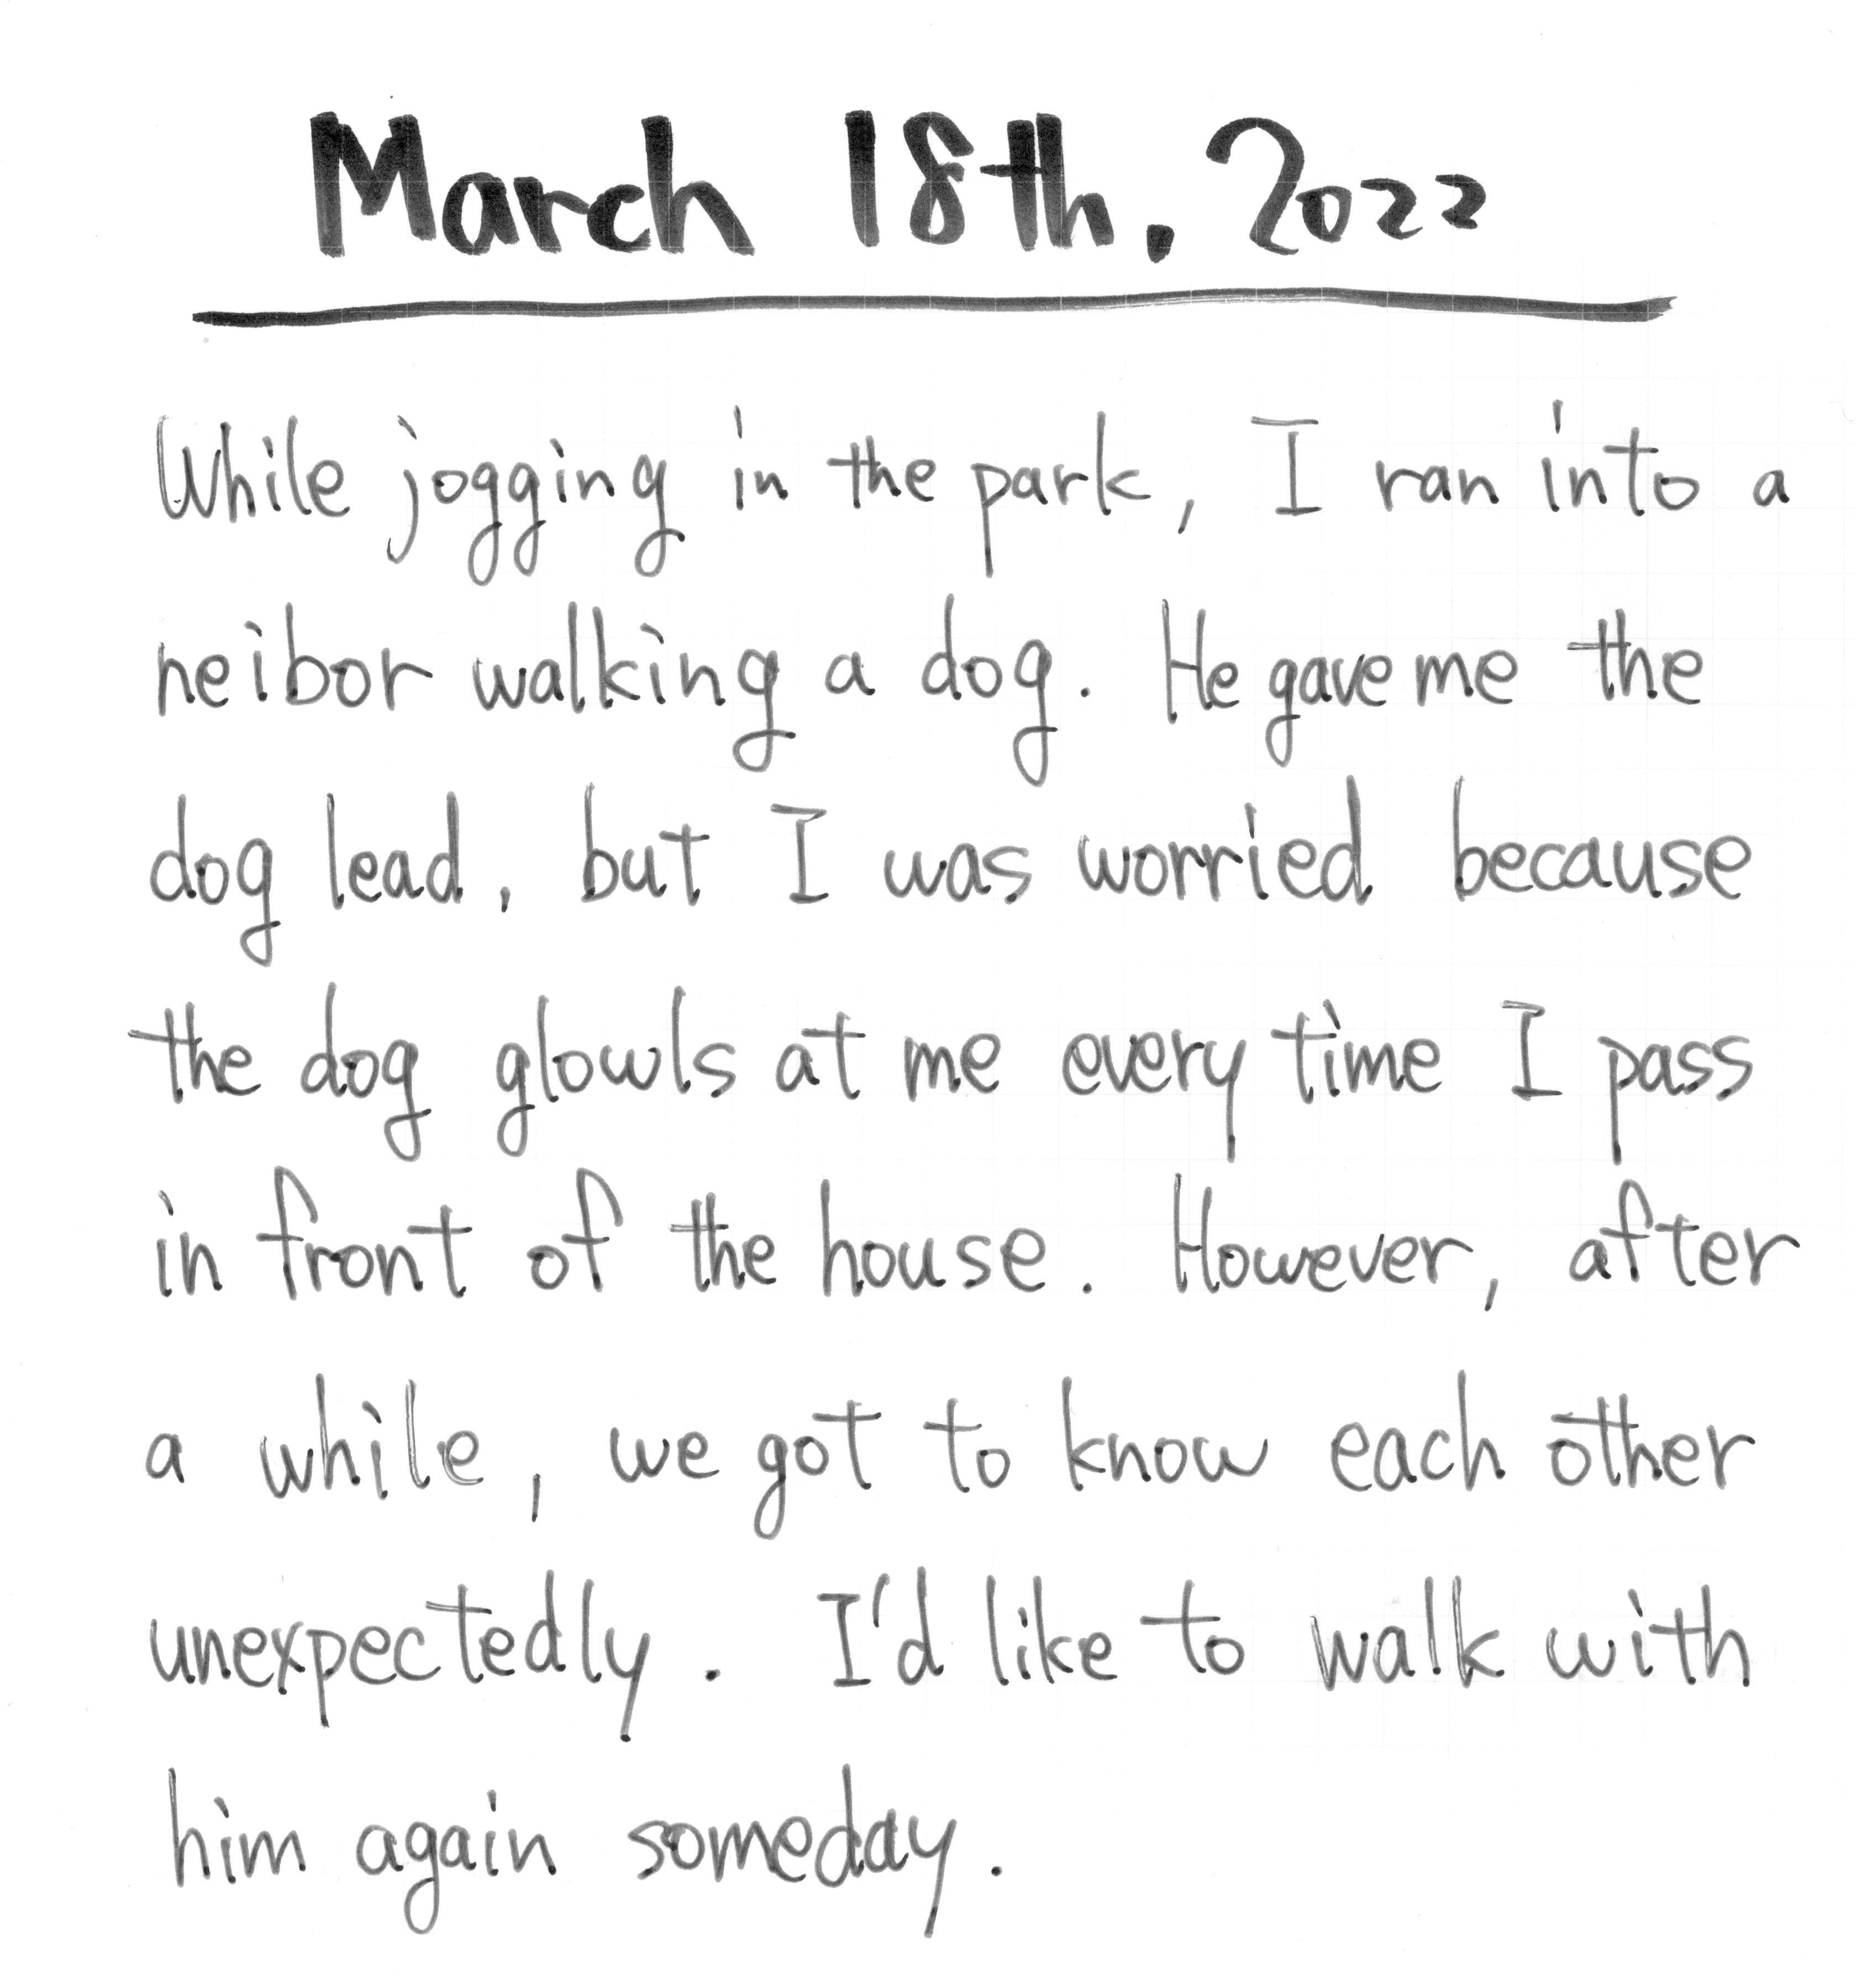 March 18th, 2022
While jogging in the park, I ran into a
neibor walking a dog. He gave me the
dog lead, but I was worried because
the dog glowls at me every time I pass
in front of the house. However, after
a while, we got to know each other
unexpectedly. I'd like to walk with
him again someday.